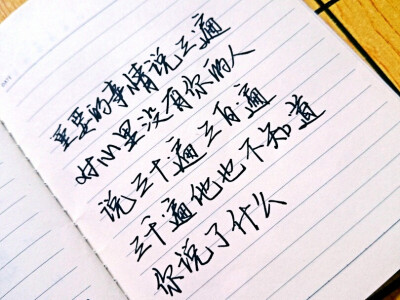 重要的事情说三遍
对心里没有你的人
说三十遍三百遍
三千遍他也不知道
你说了什么